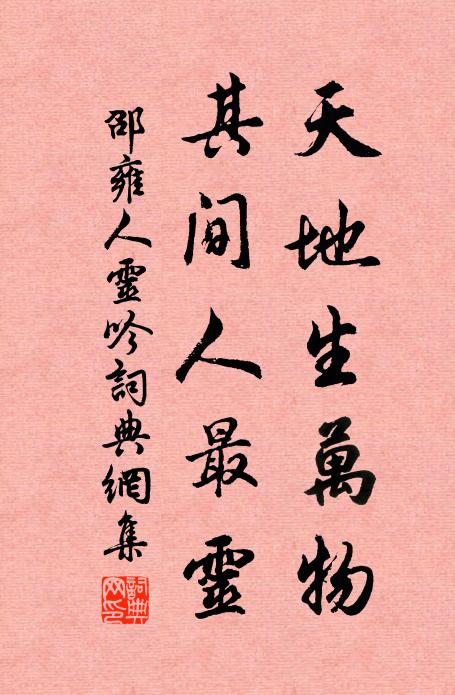 天地生萬物
其間人最靈
邵雍人靈吟詞典網集
詞典网印